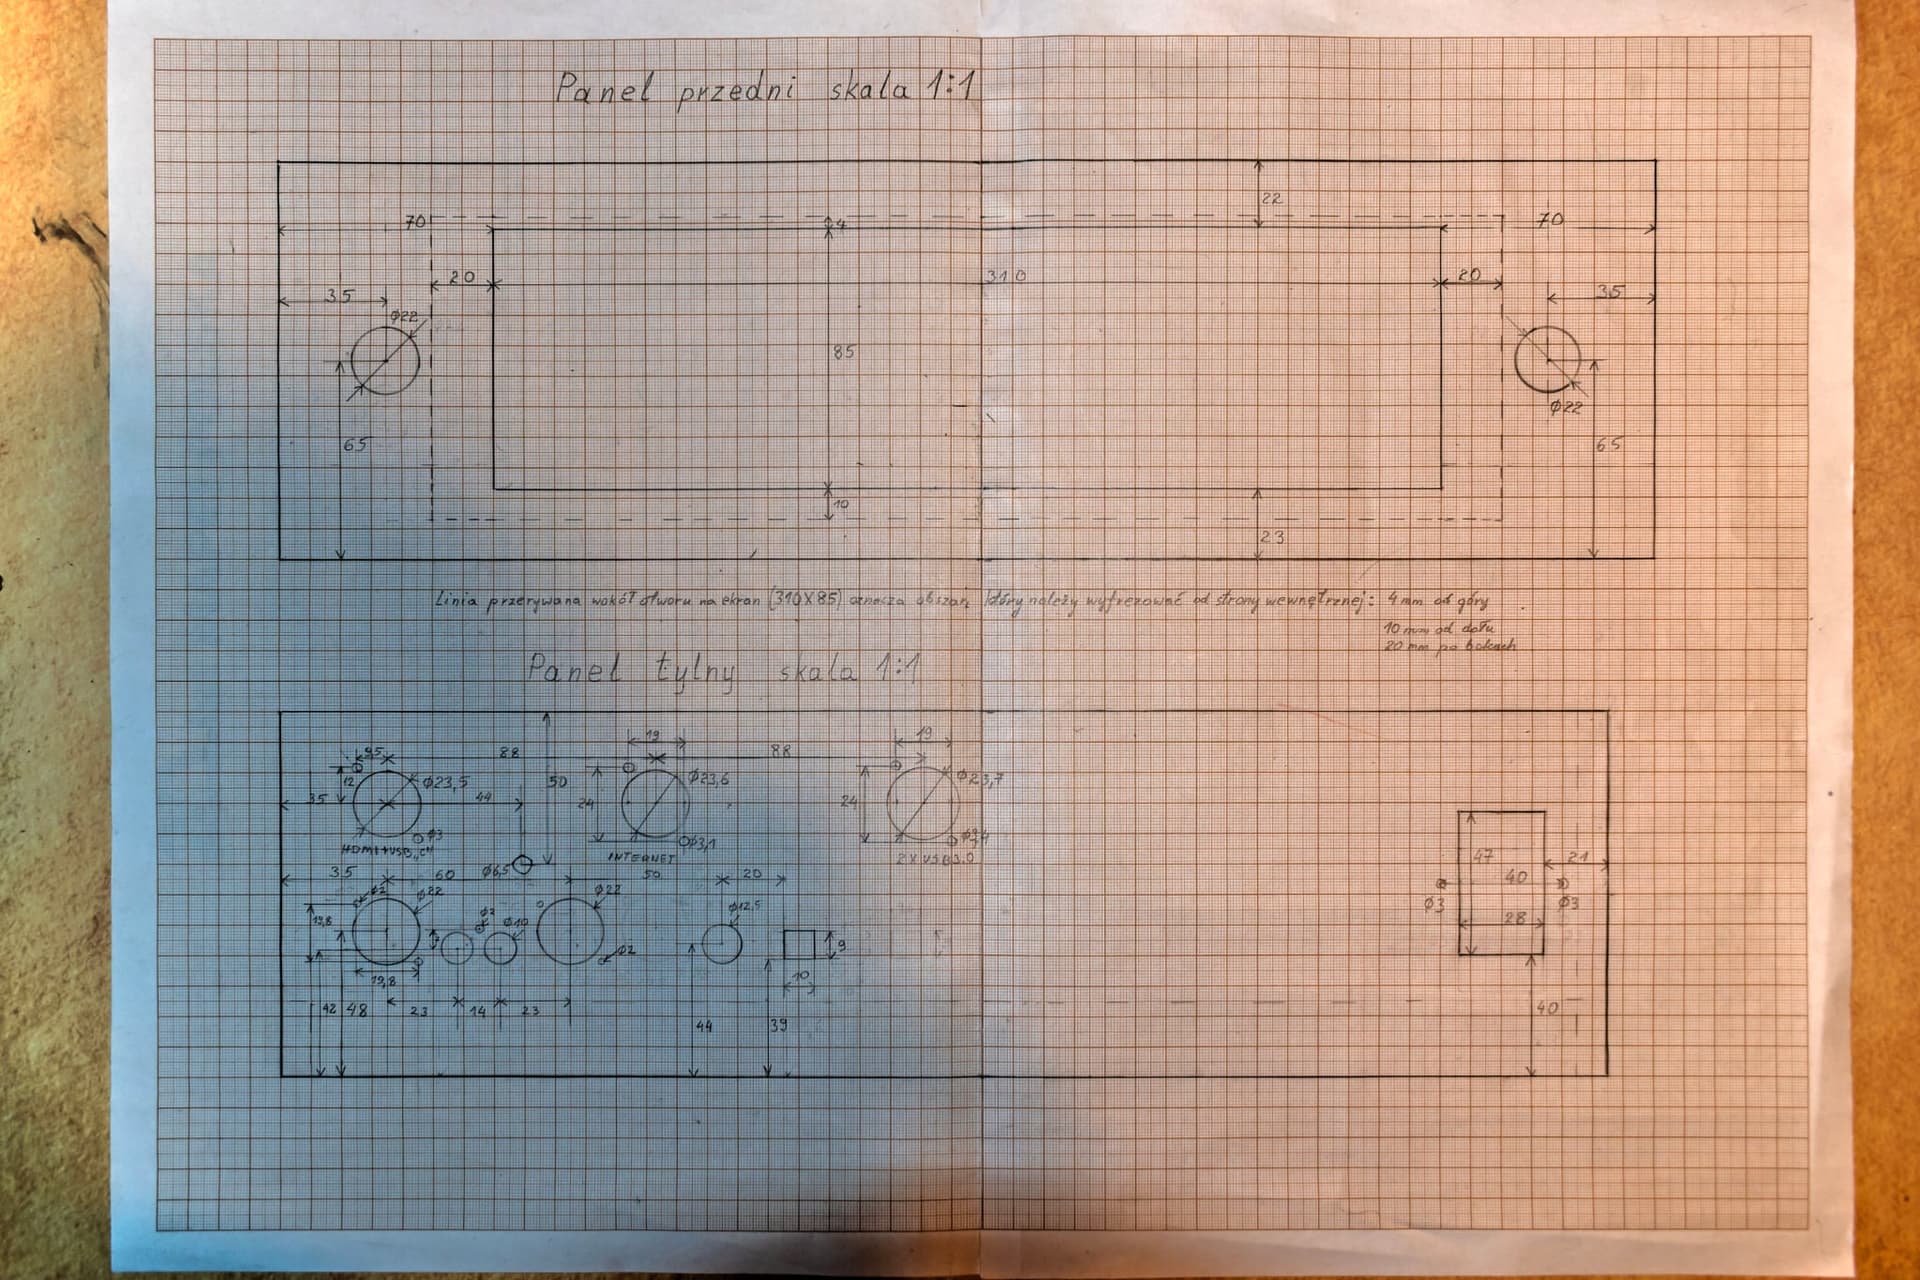 Panel przedni skala 1:1
22
70 4 70
20 310 20
35 35
φ22
85
φ22
65 65
10
23
Linia przerywana wokół otworu na ekran (310X85) oznacza obszar, który należy wyfrezować od strony wewnętrznej: 4 mm od góry
10 mm od dołu
20 mm po bokach
Panel tylny skala 1:1
19 19
95 88 88
12 φ23,5 50 φ23,6 φ23,7
35 44 24 24
φ3 φ3,1
HDMI+USB„C" INTERNET 2XUSB3.0
47 21
35 60 φ6,5 50 20 40
φ2 φ22 φ22
φ3 φ3
φ2 φ10 φ12,5
19,8 28
φ2 9
19,8 10
42 48 23 14 23 40
44 39